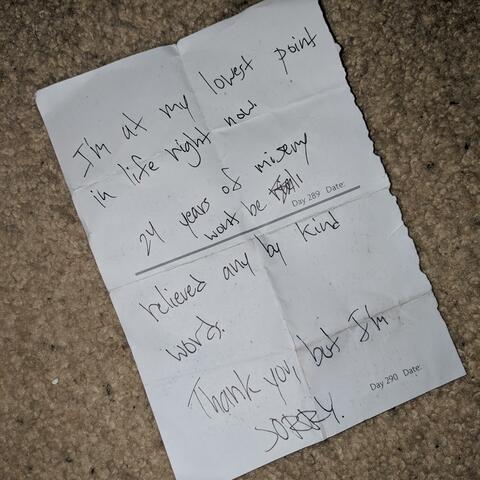 I'm at my lowest point
in life right now.
24 years of misery
wont be
Day 289 Date:
relieved any by kind
words.
Thank you, but I'm
Day 290 Date:
SORRY.